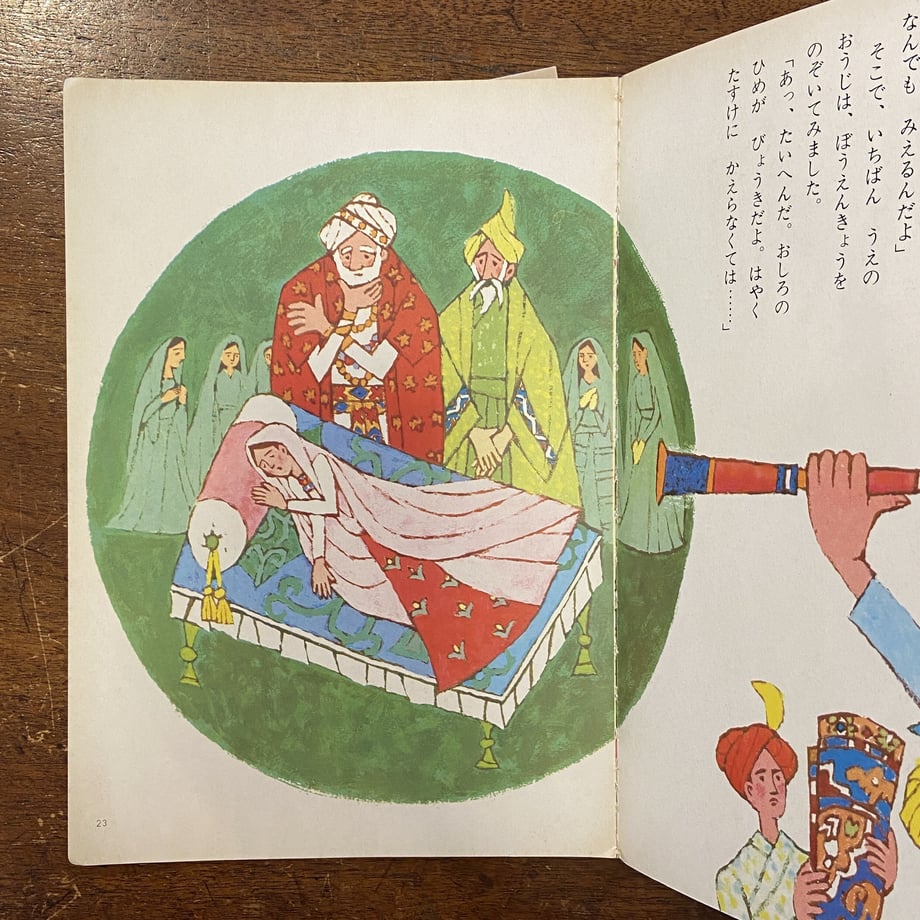 なんでも　みえるんだよ」
そこで、いちばん　うえの
おうじは、ぼうえんきょうを
のぞいてみました。
「あっ、たいへんだ。おしろの
ひめが　びょうきだよ。はやく
たすけに　かえらなくては……」
23